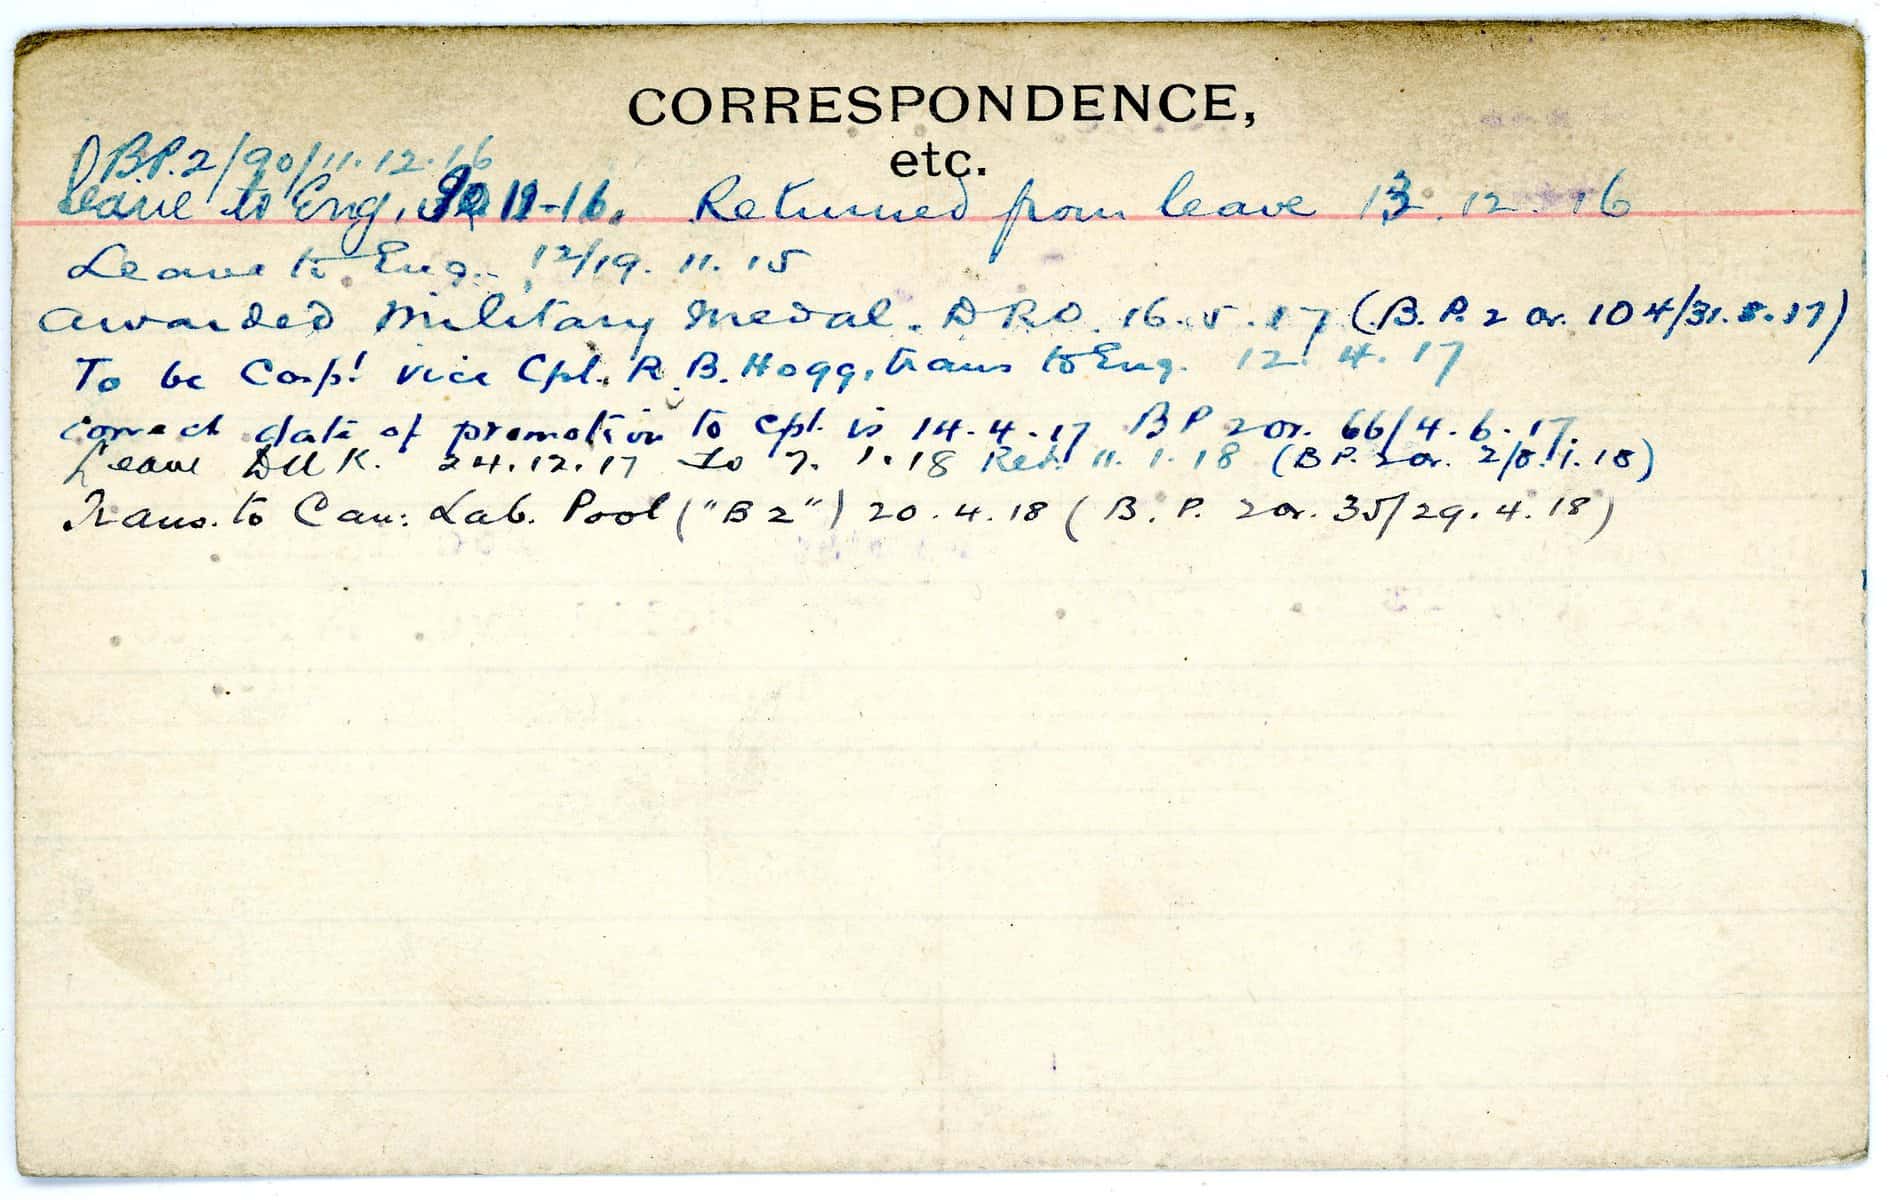 CORRESPONDENCE,
etc.
BP.2/90/11.12.16
Leave to Eng. 11-16. Returned from leave 13.12.16
Leave to Eng. 12/19.11.15
Awarded Military Medal. DRO. 16.5.17 (B.P. 2 or. 104/31.8.17)
To be Corpl vice Cpl. R.B. Hogg, trans to Eng. 12.4.17
Correct date of promotion to cpl. is 14.4.17 BP 2 or. 66/4.6.17
Leave UK. 24.12.17 To 7.1.18 Ret. 11.1.18 (BP. 2 or. 2/8.1.18)
Trans. to Can: Lab. Pool ("B2") 20.4.18 (B.P. 2 or. 35/29.4.18)